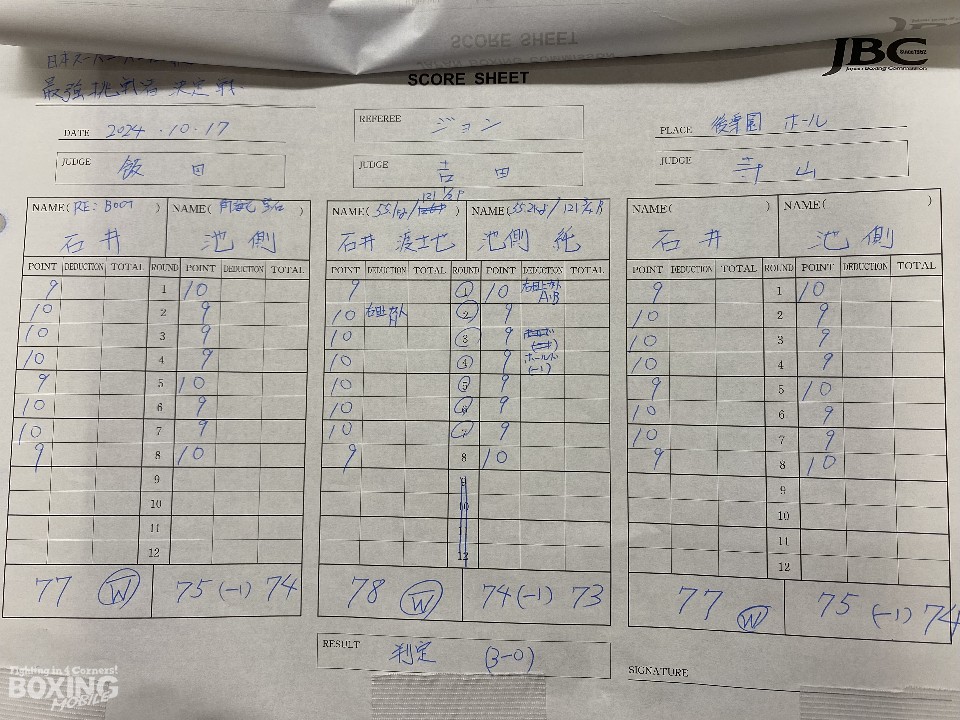 SCORE SHEET
JBC
Japan Boxing Commission
SCORE SHEET
最強挑戦者決定戦
DATE 2024.10.17
REFEREE ジョン
PLACE 後楽園 ホール
JUDGE 飯田
JUDGE 吉田
JUDGE 寺山
NAME( RE:BOOT ) NAME( )
石井 池側
NAME( 55.1kg/121 1/2 P ) NAME( 55.2kg/ )
石井 渡士也 池側 純
NAME( ) NAME( )
石井 池側
POINT DEDUCTION TOTAL ROUND POINT DEDUCTION TOTAL
9 1 10
10 2 9
10 3 9
10 4 9
9 5 10
10 6 9
10 7 9
9 8 10
9
10
11
12
77 W 75 (-1) 74
POINT DEDUCTION TOTAL ROUND POINT DEDUCTION TOTAL
9 1 10 右目上カット A・B
10 2 9
10 3 9
10 4 9 ホールド (-1)
10 5 9
10 6 9
10 7 9
9 8 10
9
10
11
12
78 W 74 (-1) 73
POINT DEDUCTION TOTAL ROUND POINT DEDUCTION TOTAL
9 1 10
10 2 9
10 3 9
10 4 9
9 5 10
10 6 9
10 7 9
9 8 10
9
10
11
12
77 W 75 (-1) 74
RESULT 判定 (3-0)
SIGNATURE
Fighting in 4 Corners!
BOXING
MOBILE